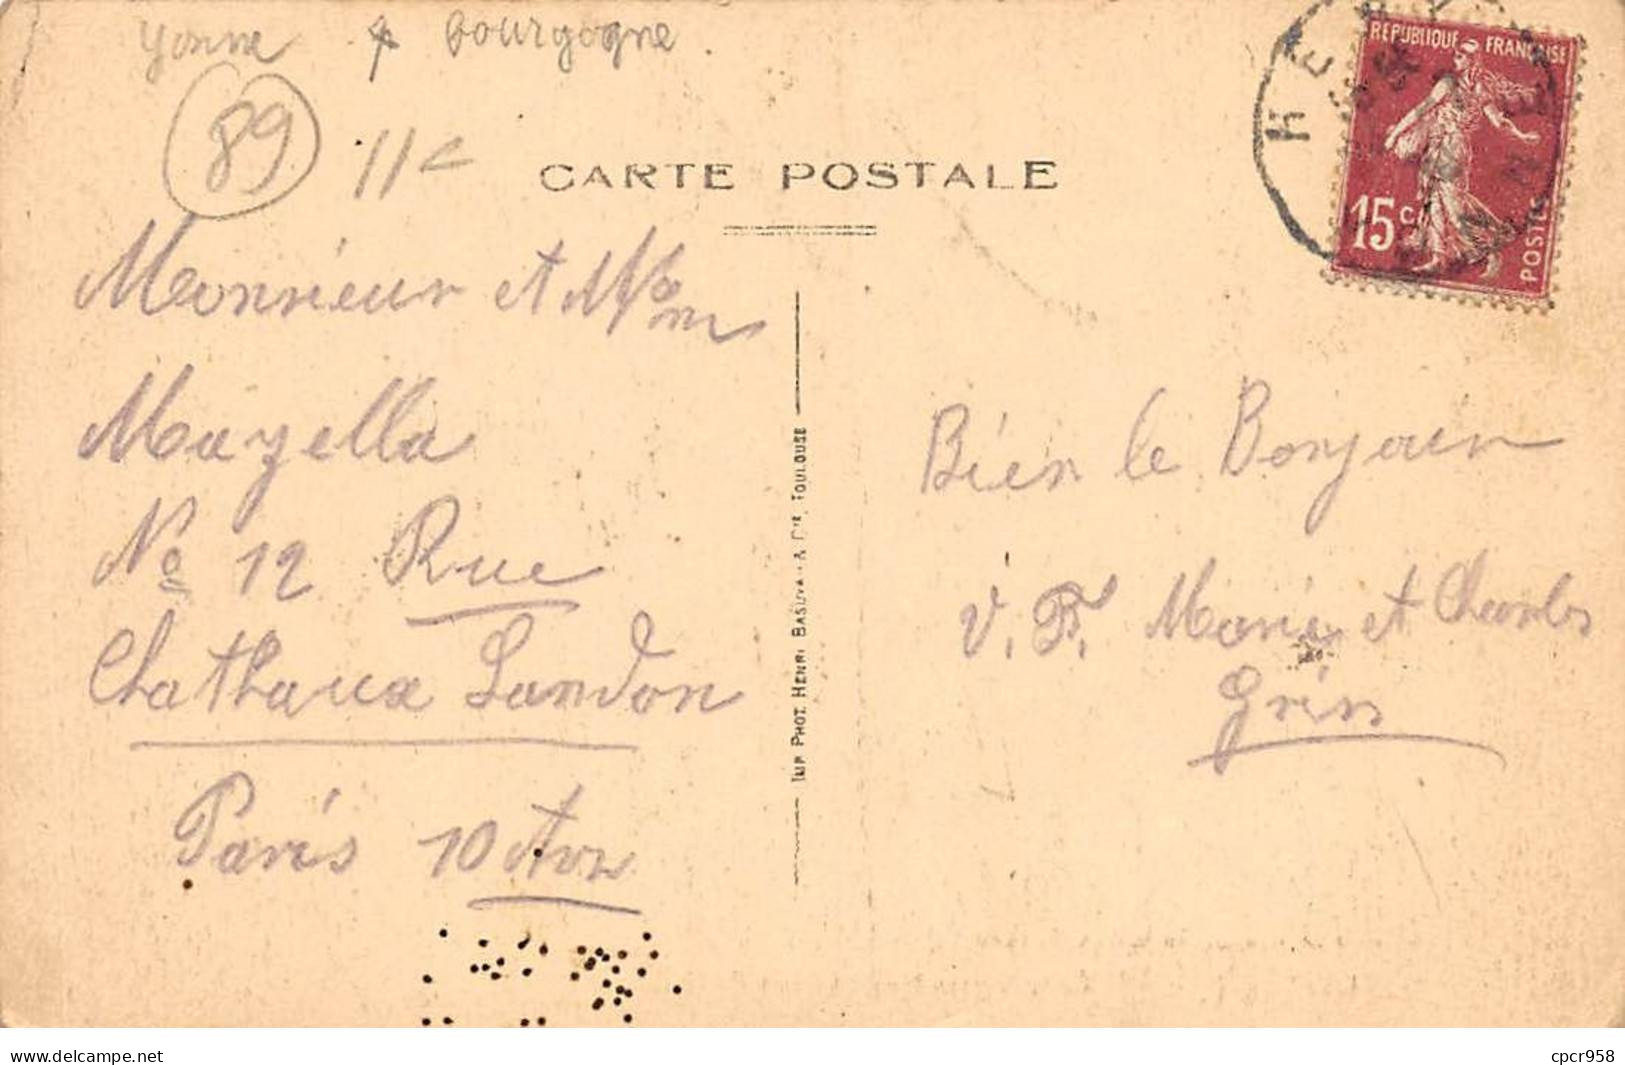 Yonne Bourgogne.
89
11€
CARTE POSTALE
RÉPUBLIQUE FRANÇAISE
15 c
POSTES
HÉ
Monsieur et Mm
Mazella
No 12 Rue
Chathaux Landon
Paris 10 Arr
IMP. PHOT. HENRI BASUYAU & Cie, TOULOUSE
Bien le Bonjour
V. Ft. Marie et Charles
Grin
www.delcampe.net
cpcr958